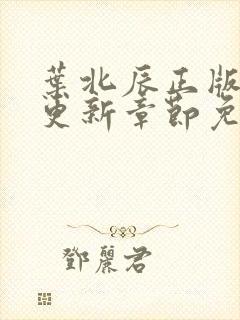 葉北辰正版
更新章節免
鄧麗君